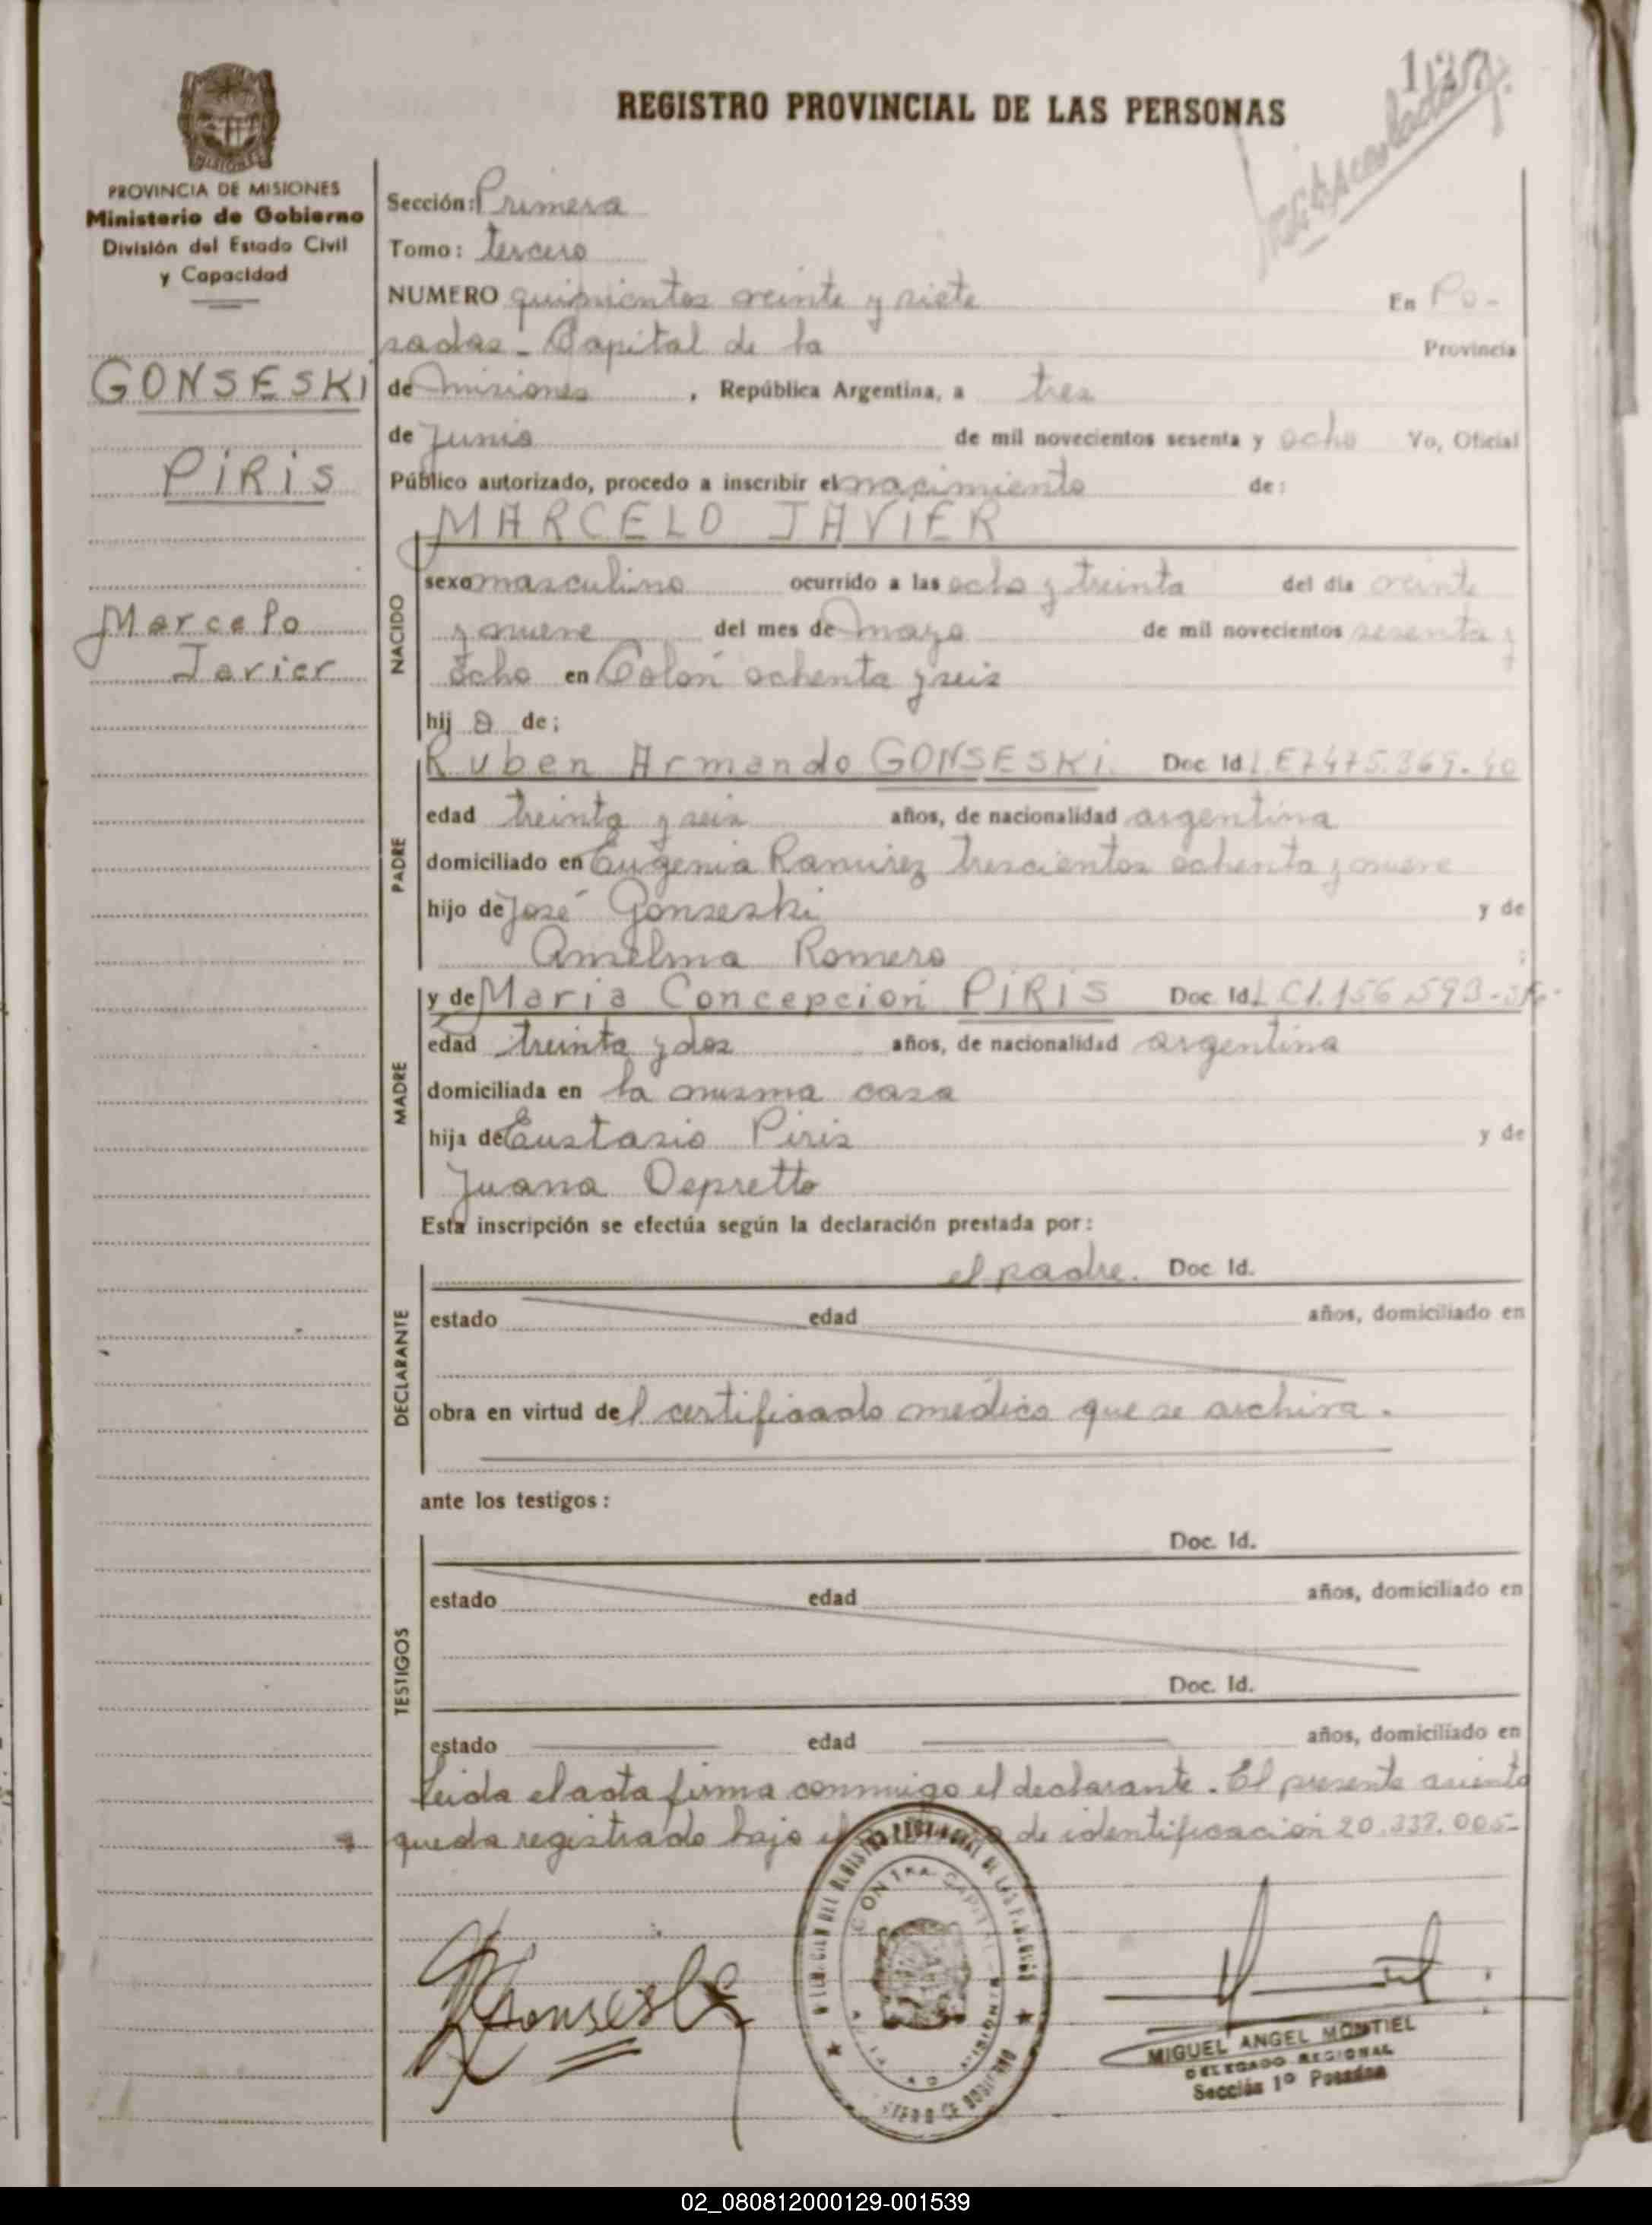 REGISTRO PROVINCIAL DE LAS PERSONAS
PROVINCIA DE MISIONES
Ministerio de Gobierno
División del Estado Civil
y Capacidad
GONSESKI
PIRIS
Marcelo
Javier
Sección: Primera
Tomo: tercero
NUMERO quinientos veinte y siete En Po-
sadas - Capital de la Provincia
de Misiones, República Argentina, a tres
de Junio de mil novecientos sesenta y ocho Yo, Oficial
Público autorizado, procedo a inscribir el nacimiento de:
MARCELO JAVIER
NACIDO
sexo masculino ocurrido a las ocho y treinta del día veinte
y nueve del mes de mayo de mil novecientos sesenta y
ocho en Colón ochenta y seis
hij o de;
PADRE
Ruben Armando GONSESKI. Doc Id L.E 7.475.369.
edad treinta y seis años, de nacionalidad argentina
domiciliado en Eugenia Ramirez trescientos ochenta y nueve
hijo de José Gonseski y de
Anselma Romero ;
MADRE
y de Maria Concepción PIRIS Doc. Id. L.C 1.156.593-
edad treinta y dos años, de nacionalidad argentina
domiciliada en la misma casa
hija de Eustasio Piris y de
Juana Depretto
Esta inscripción se efectúa según la declaración prestada por:
DECLARANTE
el padre. Doc Id.
estado edad años, domiciliado en
obra en virtud del certificado medico que se archiva.
ante los testigos:
TESTIGOS
Doc. Id.
estado edad años, domiciliado en
Doc. Id.
estado edad años, domiciliado en
Leida el acta firma conmigo el declarante. El presente asiento
queda registrado bajo el de identificación 20.337.005-
Gonseski
MIGUEL ANGEL MONTIEL
DELEGADO REGIONAL
Sección 1º Posadas
02_080812000129-001539